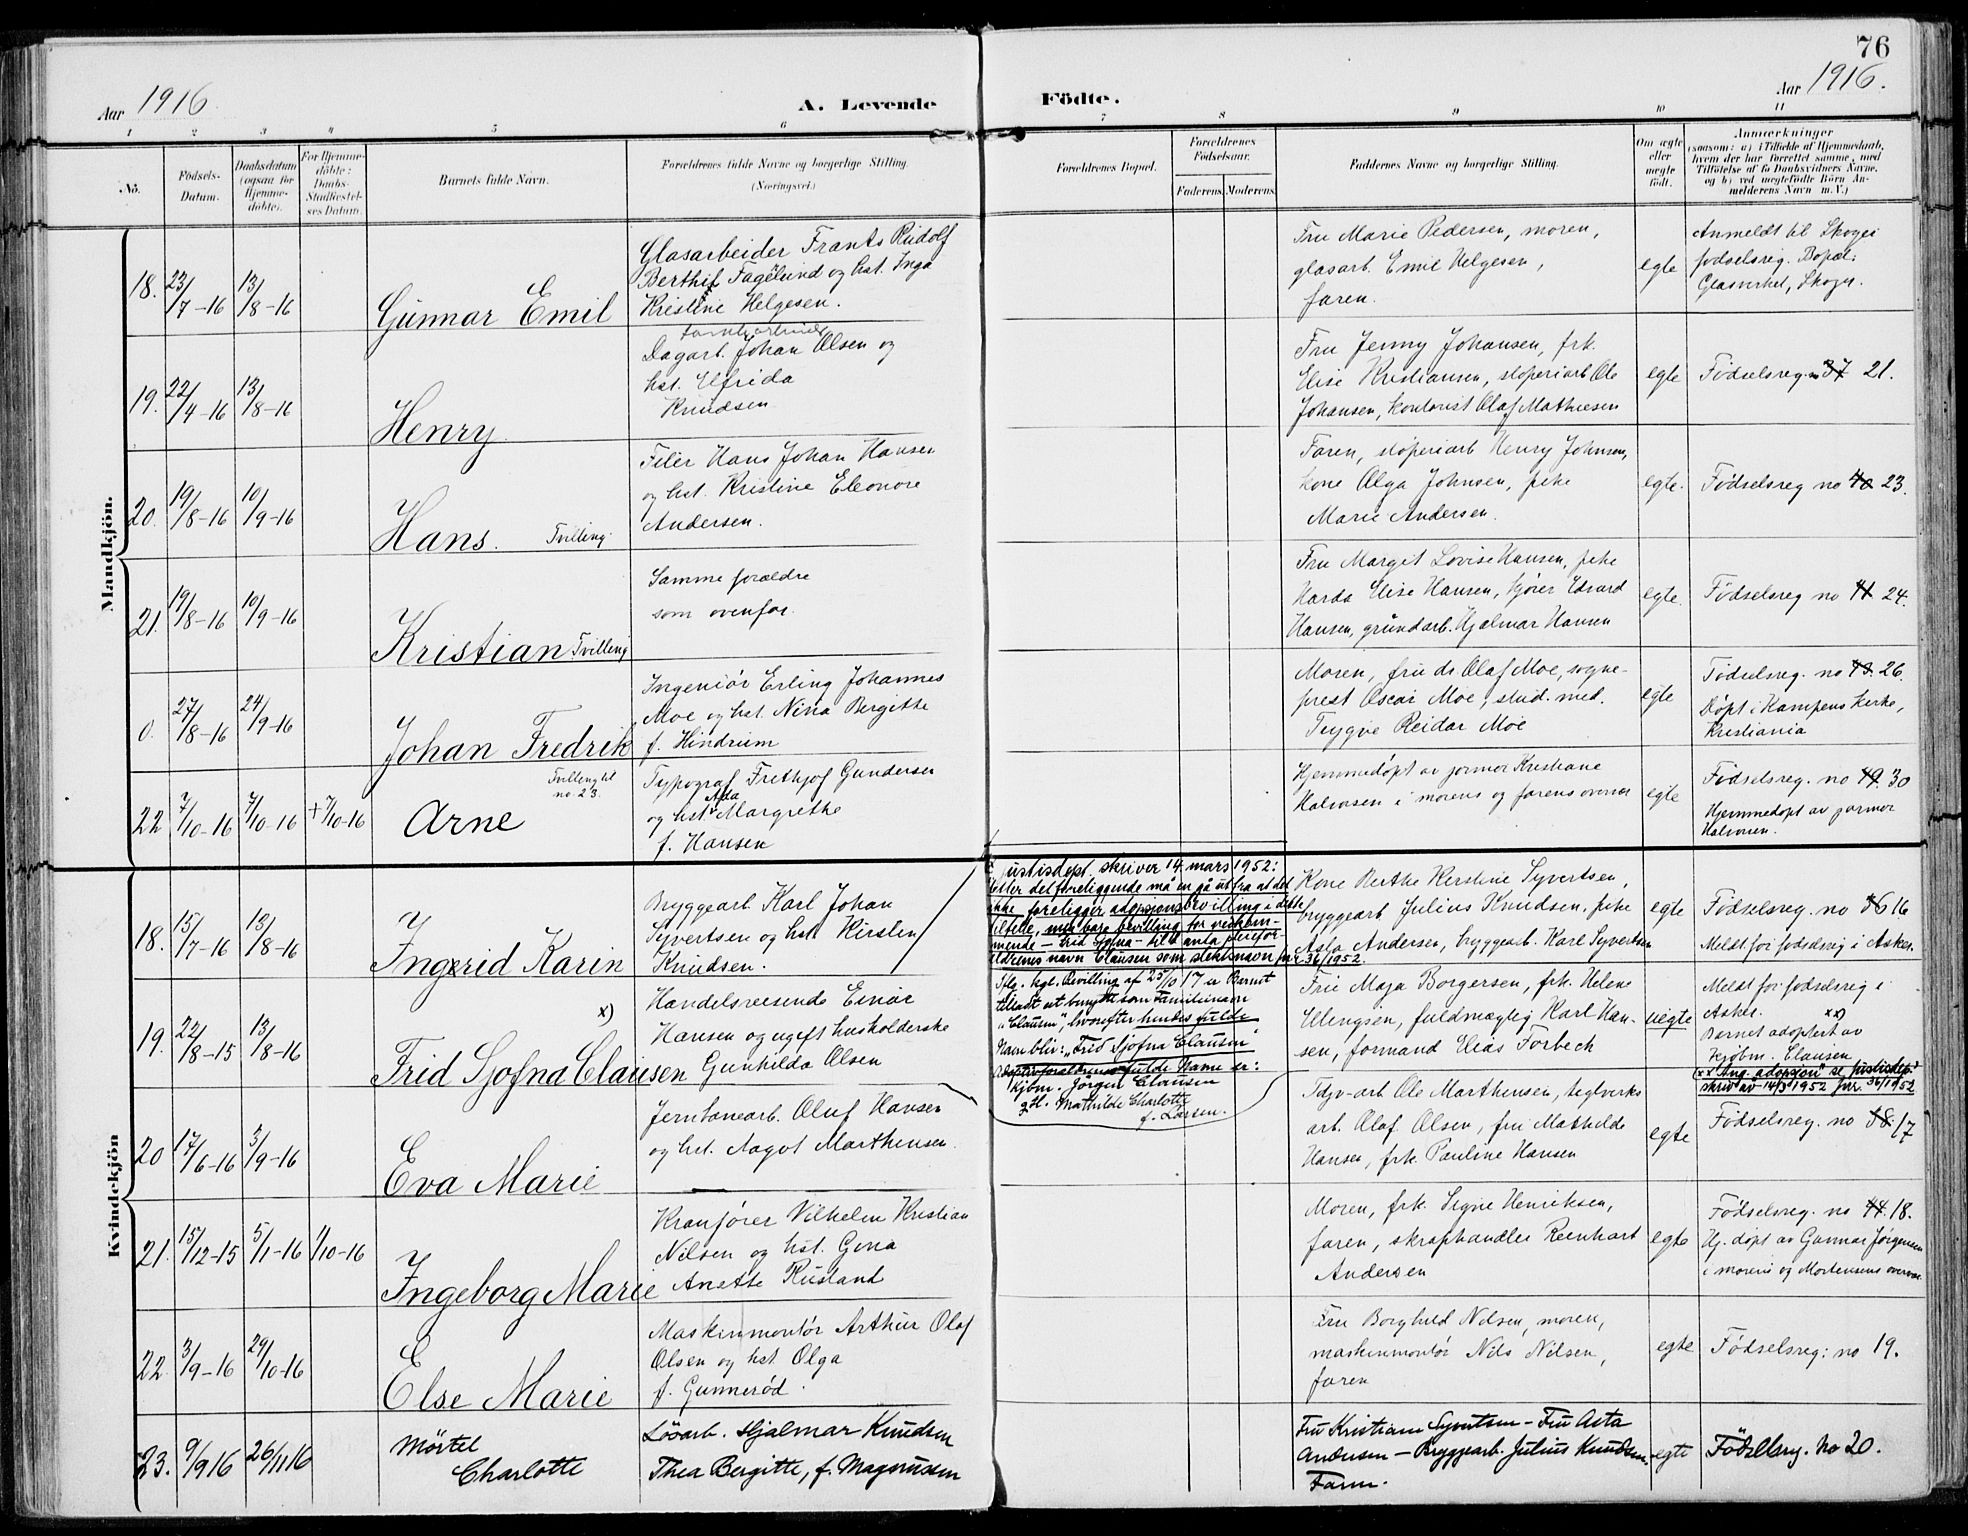 76
Aar 1916
A. Levende Födte.
Aar 1916.
1 2 3 4 5 6 7 8 9 10 11
No.
Födsels-
Datum.
Daabsdatum
(ogsaa for
Hjemme-
döbte).
For Hjemme-
döbte:
Daabs-
Stadfæstel-
ses Datum.
Barnets fulde Navn.
Forældrenes fulde Navne og borgerlige Stilling.
(Næringsvei.)
Forældrenes Bopæl.
Forældrenes
Födselsaar.
Faderens. Moderens.
Faddernes Navne og borgerlige Stilling.
Om ægte
eller
uægte
födt.
Anmærkninger
(saasom: a) i Tilfælde af Hjemmedaab,
hvem der har forrettet samme, med
Tilföielse af to Daabsvidners Navne,
og b) ved uægtefödte Börn An-
melderens Navn m. V.)
Mandkjön.
18. 23/7-16 13/8-16
Gunnar Emil
Glasarbeider Frants Rudolf
Berthif Fagelund og hst. Inga
Kristine Helgesen.
Fru Marie Pedersen, moren,
glasarb. Emil Helgesen,
faren.
egte
Anmeldt til Skoger
fødselsreg. Bopæl:
Glasverket, Skoger.
19. 22/4-16 13/8-16
Henry
Dagarb. Johan Olsen og
hst. Elfrida
Knudsen
Fru Jenny Johansen, frk.
Elise Kristiansen, støperiarb Ole
Johansen, kontorist Olaf Mathiesen
egte
Fødselsreg. no 37 21.
20. 19/8-16 10/9-16
Hans. Tvilling.
Filer Hans Johan Hansen
og hst. Kristine Eleonore
Andersen.
Faren, støperiarb Henry Johnsen,
kone Olga Johnsen, pike
Marie Andersen.
egte.
Fødselsreg no 40 23.
21. 19/8-16 10/9-16
Kristian Tvilling
Samme forældre
som ovenfor.
Fru Margit Lovise Hansen, pike
Harda Elise Hansen, kjører Edvard
Hansen, grundarb. Hjalmar Hansen
egte.
Fødselsreg no 41 24.
0. 27/8-16 24/9-16
Johan Fredrik
Ingeniør Erling Johannes
Moe og hst. Nina Bergitte
f. Hindrum
Moren, fru ds. Olaf Moe, sogne-
prest Oscar Moe, stud. med.
Trygve Reidar Moe
egte
Fødselsreg. no 43. 26.
Døpt i Kampens kirke,
Kristiania
22 7/10-16 7/10-16 +7/10-16
Tvilling til
no 23.
Arne
Typograf Frithjof Gundersen
og hst. Ada Margrethe
f. Hansen
Hjemmedøpt av jormor Kristiane
Halvorsen i morens og farens overvær
egte
Fødselsreg. no 49. 30
Hjemmedøpt av jormor
Halvorsen.
Kvindekjön
18. 15/7-16 13/8-16
Ingerid Karin
Bryggearb. Karl Johan
Syvertsen og hst. Kirsten
Knudsen.
Justisdept. skriver 14 mars 1952:
Etter det foreliggende må en gå ut fra at det
ikke foreligger adopsjonsbevilling i dette
tilfelle, men bare bevilling for vedkom-
mende — Frid Sjofna — til å anta pleiefor-
eldrenes navn Clausen som slektsnavn jnr. 36/1952.
Kone Berthe Kirstine Syvertsen,
bryggearb Julius Knudsen, pike
Asta Andersen, bryggearb. Karl Syvertsen
egte
Fødselsreg. no 36 16
Meldt for fødselsreg i Asker.
19. 22/8-15 13/8-16
x)
Frid Sjofna Clausen
Handelsreisende Einar
Hansen og ugift husholderske
Gunhilda Olsen
Iflg. kgl. Bevilling af 25/10 17 er Barnet
tilladt at benytte som Familienavn
„Clausen", hvorefter hendes fulde
Navn blir: „Frid Sjofna Clausen"
Adoptivforældrenes fulde Navne er:
Kjøbm. Jörgen Clausen
g H. Mathilde Charlotte
f. Larsen.
Frie Maja Borgersen, frk. Helene
Ellingsen, fuldmægtig Karl Han-
sen, formand Elias Forbech
uegte
Meldt for fødselsreg i
Asker. xx)
Barnet adoptert av
kjøbm. Clausen
xx Ang. adopsjon se justisdep.s
skriv av 14/3 1952 jnr. 36/1952
20 17/6-16 3/9-16
Eva Marie
Jerntonearb. Oluf Hansen
og hst. Aagot Marthinsen.
Tdjv-arb Ole Marthinsen, teglverks
arb. Olaf Olsen, fru Mathilde
Hansen, frk. Pauline Hansen
egte
Fødselsreg. no 38. 17
21. 15/12-15 5/1-16 1/10-16
Ingeborg Marie
Kranfører Vilhelm Kristian
Nilsen og hst. Gina
Anette Rusland
Moren, frk. Signe Henriksen,
faren, skraphandler Reinhart
Andersen
egte
Fødselsreg. no 44. 18.
Hj. døpt av Gunnar Jørgensen
i morens og Mortensens overvær
22. 3/9-16 29/10-16
Else Marie
Maskinmontør Arthur Olaf
Olsen og hst. Olga
f. Gunnerød.
Fru Borghild Nilsen, moren,
maskinmontør Nils Nilsen,
faren
egte
Fødselsreg: no 19.
23. 9/9 16 26/11 16
Mörtel
Charlotte
Løsarb. Hjalmar Knudsen
Thea Bergitte, f. Magnussen
Fru Kristiane Syvertsen - Fru Asta
Andersen - Bryggearb. Julius Knudsen.
Faren.
egte
Fødselsreg. No 20.